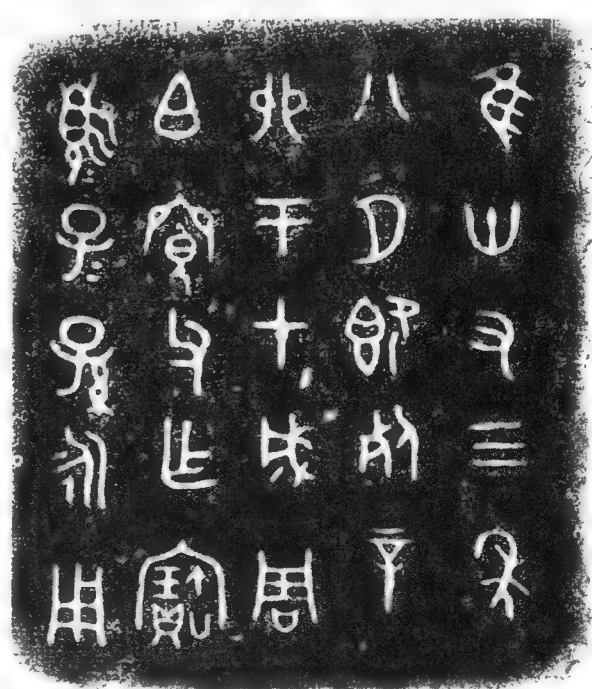 隹卅又三年
八月既死辛
卯王才成周
白寬父乍寶
須子＝孫＝永用